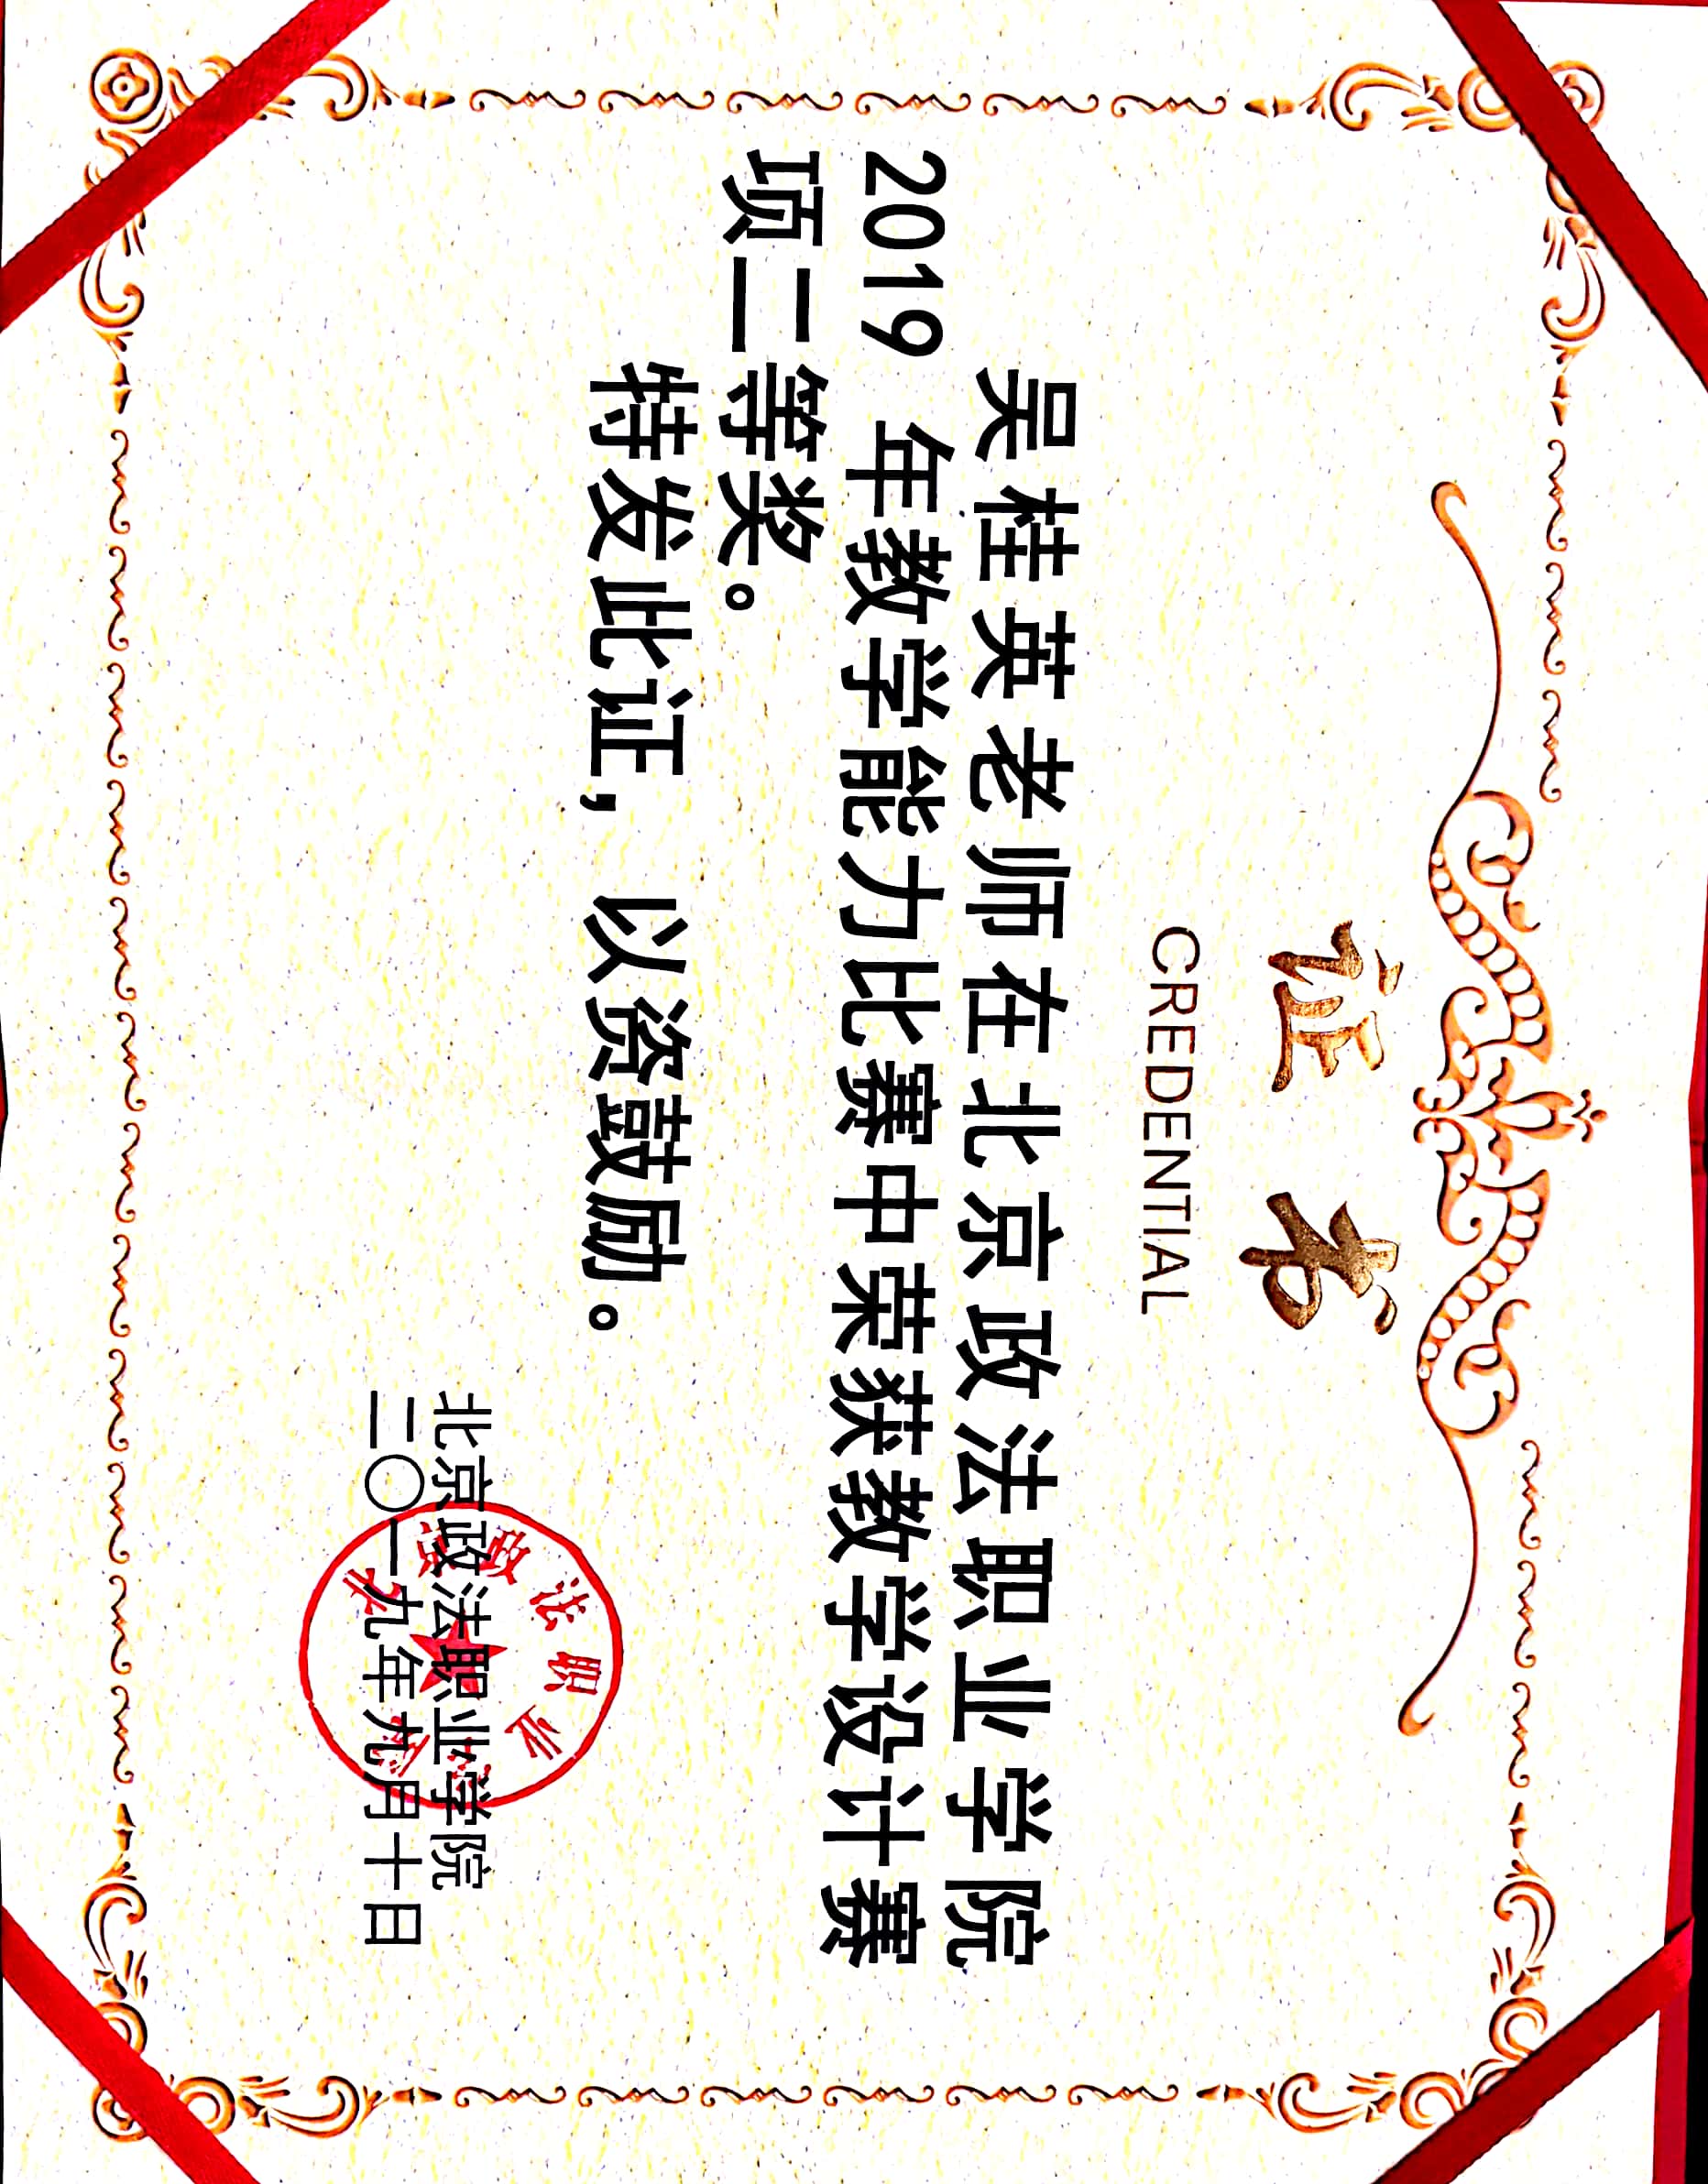 证书
CREDENTIAL
吴桂英老师在北京政法职业学院
2019 年教学能力比赛中荣获教学设计赛
项二等奖。
特发此证，以资鼓励。
北京政法职业学院
二〇一九年九月十日
北京政法职业学院